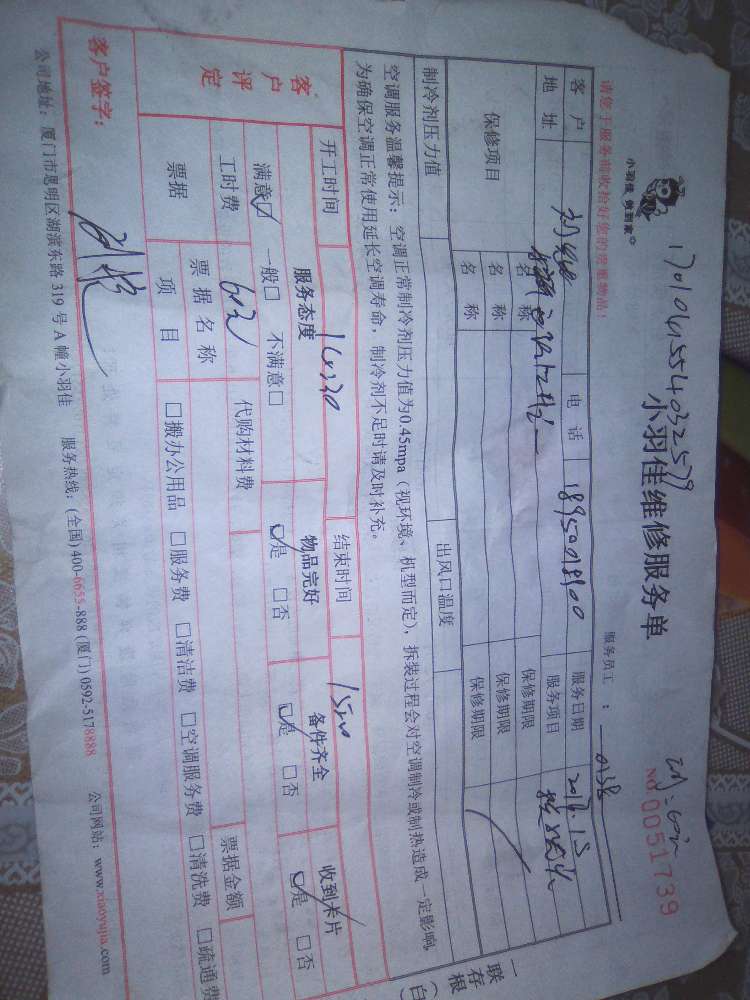 1701041554032579
小羽佳 做到家
小羽佳维修服务单
No.0051739
请您于服务前收拾好您的贵重物品!
服务员工 :
客户
电话 18950128100
服务日期
地址
服务项目
保修项目
名称
保修期限
名称
保修期限
名称
保修期限
制冷剂压力值
出风口温度
空调服务温馨提示:空调正常制冷剂压力值为0.45mpa(视环境、机型而定),拆装过程会对空调制冷或制热造成一定影响,
为确保空调正常使用延长空调寿命,制冷剂不足时请及时补充。
开工时间 14:20
结束时间 15:20
客户评定
服务态度
物品完好
备件齐全
收到卡片
满意☑ 一般□ 不满意□
☑是 □否
☑是 □否
☑是 □否
工时费 60元
代购材料费
票据
票据名称
票据金额
项目
□搬办公用品 □服务费 □清洁费 □空调服务费 □清洗费 □疏通费
客户签字:
公司地址:厦门市思明区湖滨东路 319 号 A 幢小羽佳 服务热线:(全国) 400-6655-888 (厦门) 0592-5178888 公司网站:www.xiaoyujia.com
一联存根(白